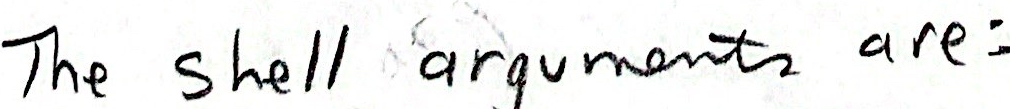 The shell arguments are: